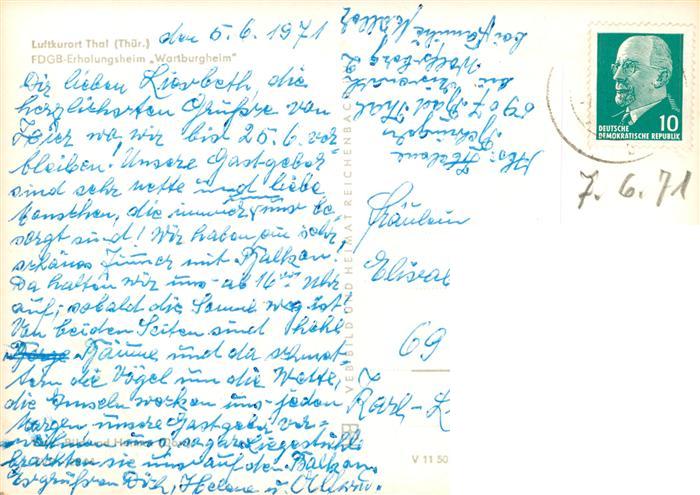 Luftkurort Thal (Thür.)
den 5. 6. 1971
FDGB-Erholungsheim „Wartburgheim"
Dir lieben Liesbeth, die
herzlichsten Grüsse von
hier wo wir bis 25.6. ver-
bleiben! Unsere Gastgeber
sind sehr nette und liebe
Menschen, die immer um uns be-
sorgt sind! Wir haben ein sehr
schönes Zimmer mit Balkon.
Da halten wir uns ab 16 Uhr
auf, sobald die Sonne weg ist.
Von beiden Seiten sind hohe
Bäume und da schmet-
tern die Vögel um die Wette,
die Amseln wecken uns jeden
Morgen unsere Gastgeber
sogar Liegestühle
brachten sie uns auf den Balkon.
Es grüssen Dich, Helene u.
Abs: Helene
5907 Bad Thal
bei Eisenach
Wolfsberg 2
bei Familie
VEB BILD UND HEIMAT REICHENBACH
DEUTSCHE
DEMOKRATISCHE REPUBLIK
10
7. 6. 71
Fräulein
Elisa
69
Karl-L
V 11 50